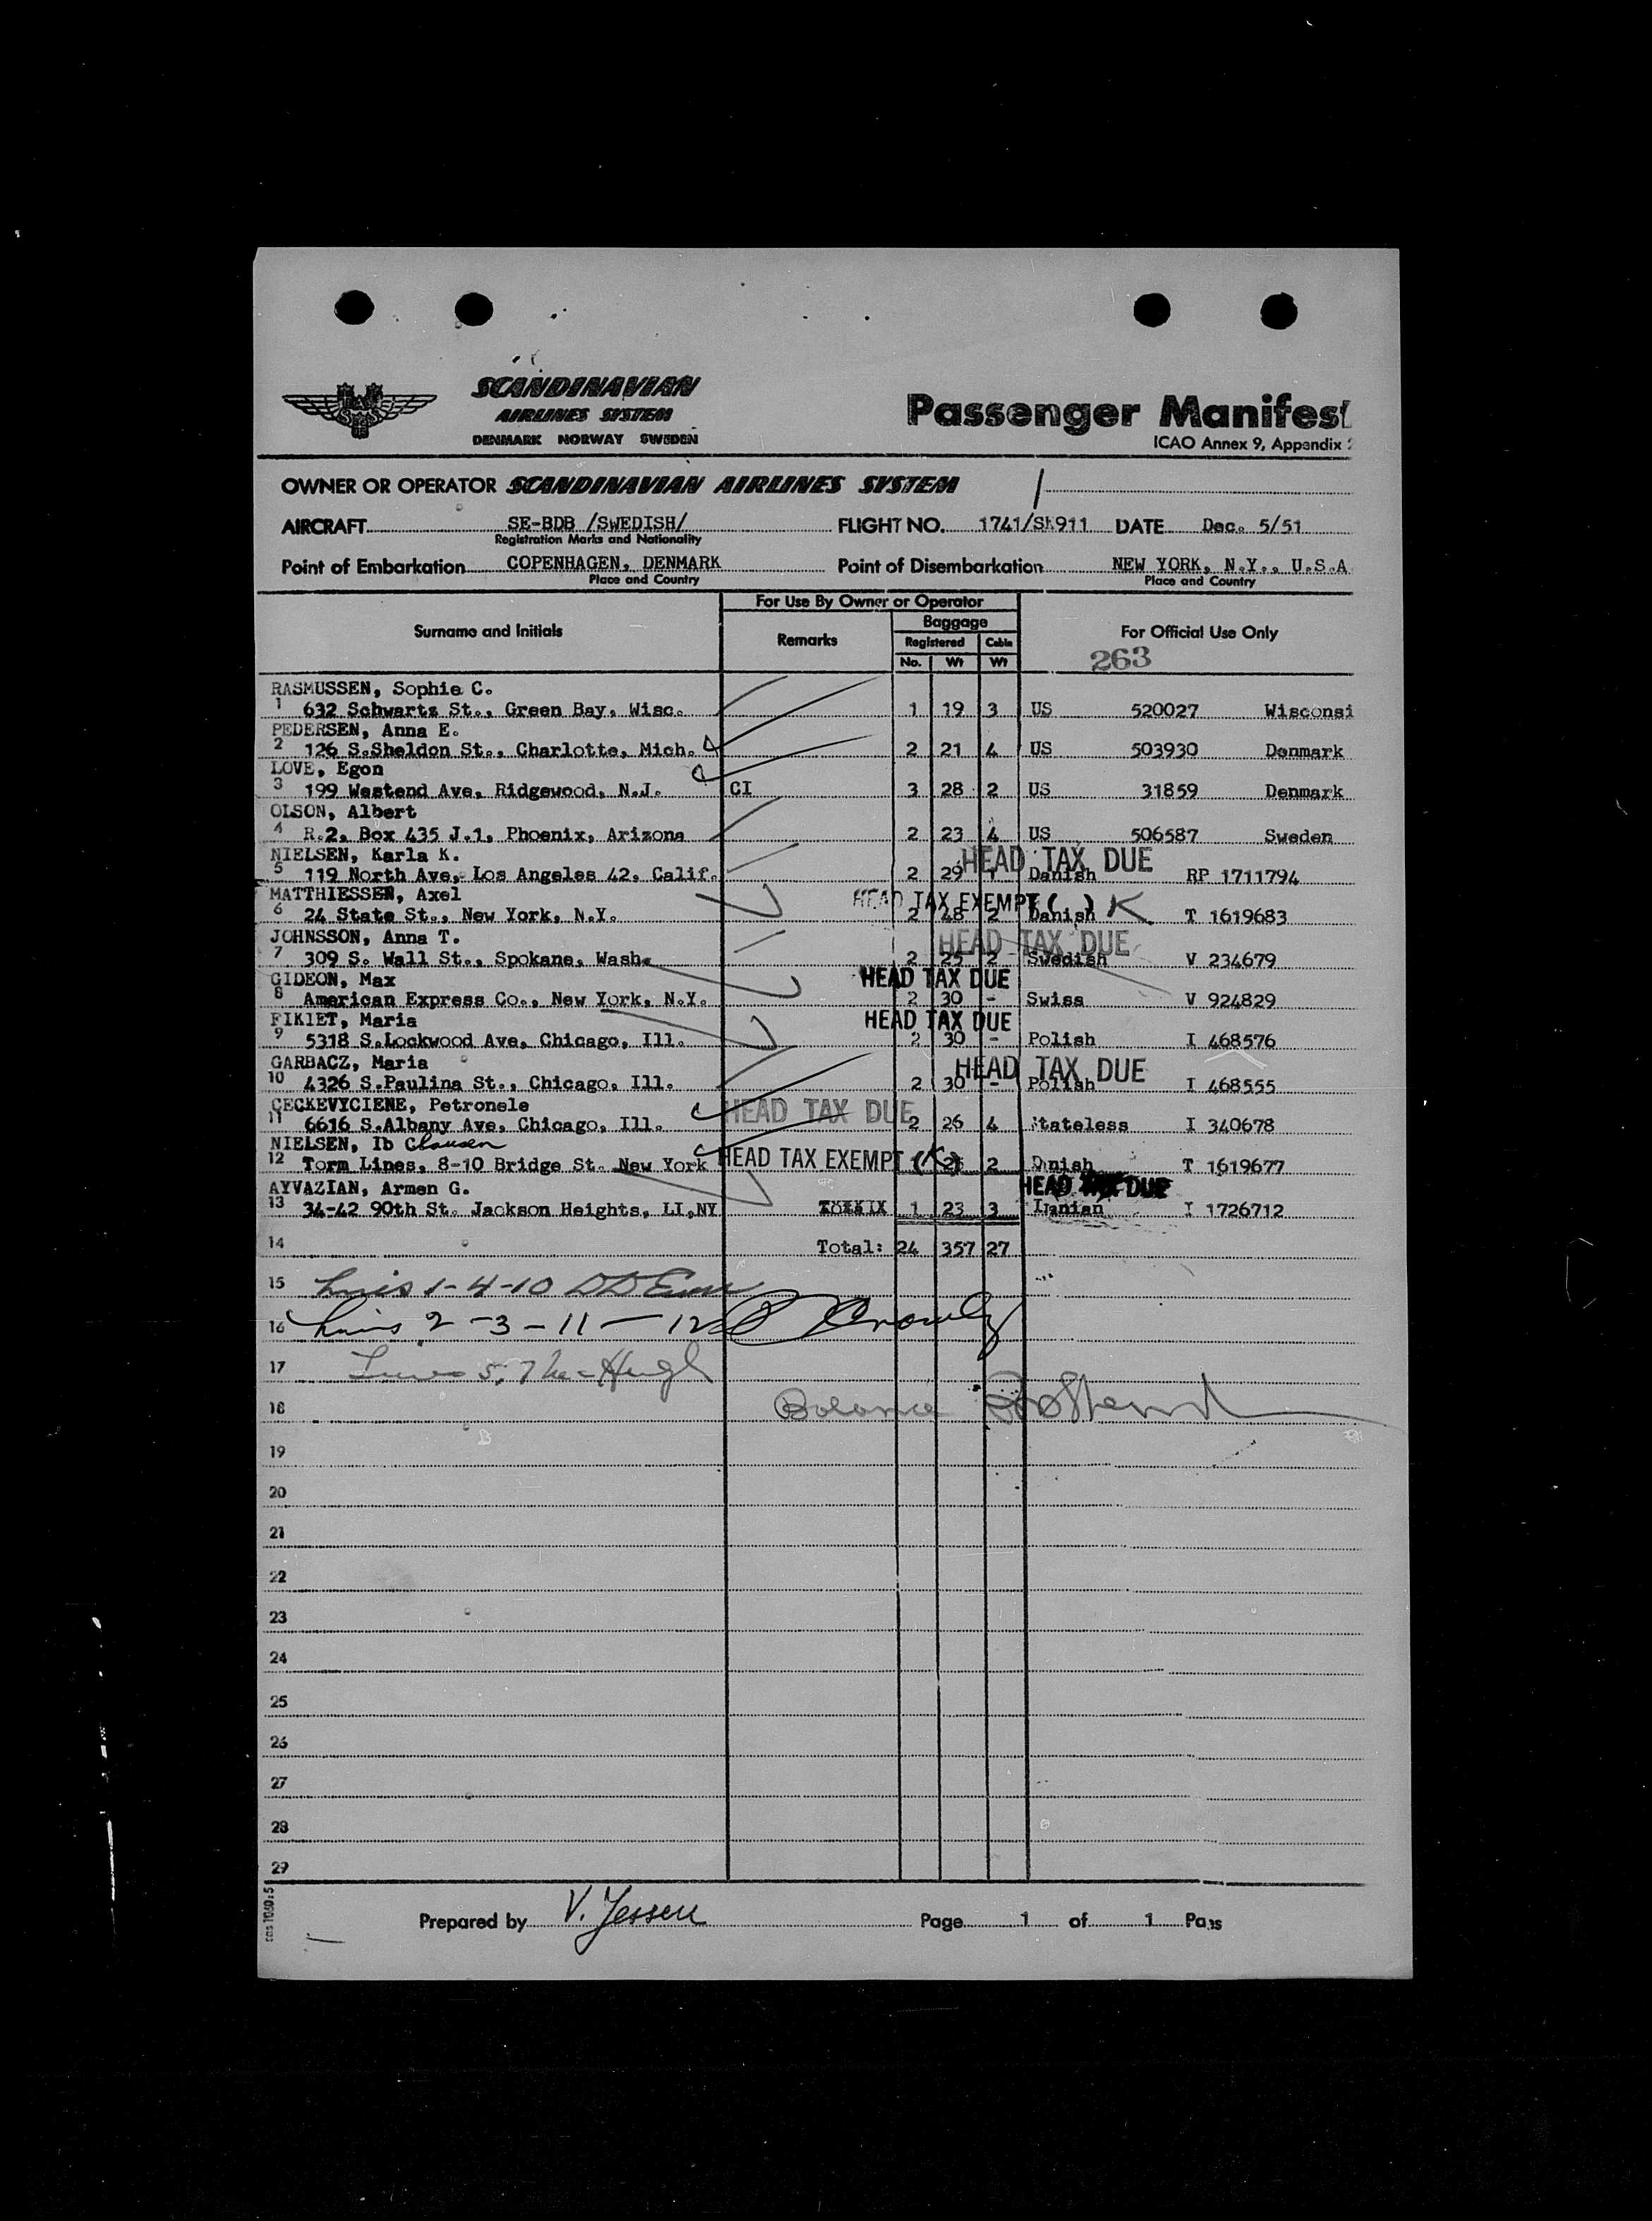 SCANDINAVIAN
AIRLINES SYSTEM
DENMARK NORWAY SWEDEN
Passenger Manifest
ICAO Annex 9, Appendix
OWNER OR OPERATOR SCANDINAVIAN AIRLINES SYSTEM
AIRCRAFT SE-BDB /SWEDISH/ FLIGHT NO. 1741/SK911 DATE Dec. 5/51
Registration Marks and Nationality
Point of Embarkation COPENHAGEN, DENMARK Point of Disembarkation NEW YORK, N.Y., U.S.A
Place and Country Place and Country
For Use By Owner or Operator
Surname and Initials Remarks Baggage For Official Use Only
Registered Cabin
No. Wt Wt 263
RASMUSSEN, Sophie C.
1 632 Schwartz St., Green Bay, Wisc. 1 19 3 US 520027 Wisconsi
PEDERSEN, Anna E.
2 126 S.Sheldon St., Charlotte, Mich. 2 21 4 US 503930 Denmark
LOVE, Egon
3 199 Westend Ave, Ridgewood, N.J. CI 3 28 2 US 31859 Denmark
OLSON, Albert
4 R.2, Box 435 J.1, Phoenix, Arizona 2 23 4 US 506587 Sweden
NIELSEN, Karla K. HEAD TAX DUE
5 119 North Ave, Los Angeles 42, Calif. 2 29 Danish RP 1711794
MATTHIESSEN, Axel HEAD TAX EXEMPT ( ) K
6 24 State St., New York, N.Y. 2 48 2 Danish T 1619683
JOHNSSON, Anna T. HEAD TAX DUE
7 309 S. Wall St., Spokane, Wash. 2 25 2 Swedish V 234679
GIDEON, Max HEAD TAX DUE
8 American Express Co., New York, N.Y. 2 30 - Swiss V 924829
FIKIET, Maria HEAD TAX DUE
9 5318 S.Lockwood Ave, Chicago, Ill. 2 30 - Polish I 468576
GARBACZ, Maria HEAD TAX DUE
10 4326 S.Paulina St., Chicago, Ill. 2 30 - Polish I 468555
CECKEVYCIENE, Petronele HEAD TAX DUE
11 6616 S.Albany Ave, Chicago, Ill. 2 26 4 Stateless I 340678
NIELSEN, Ib Clausen
12 Torm Lines, 8-10 Bridge St. New York HEAD TAX EXEMPT (K) 2 Danish T 1619677
AYVAZIAN, Armen G. HEAD TAX DUE
13 34-42 90th St. Jackson Heights, LI,NY 1 23 3 Iranian I 1726712
14 Total: 24 357 27
15 1-4-10
16 2-3-11-12
17
18
19
20
21
22
23
24
25
26
27
28
29
Prepared by V. Jessen Page 1 of 1